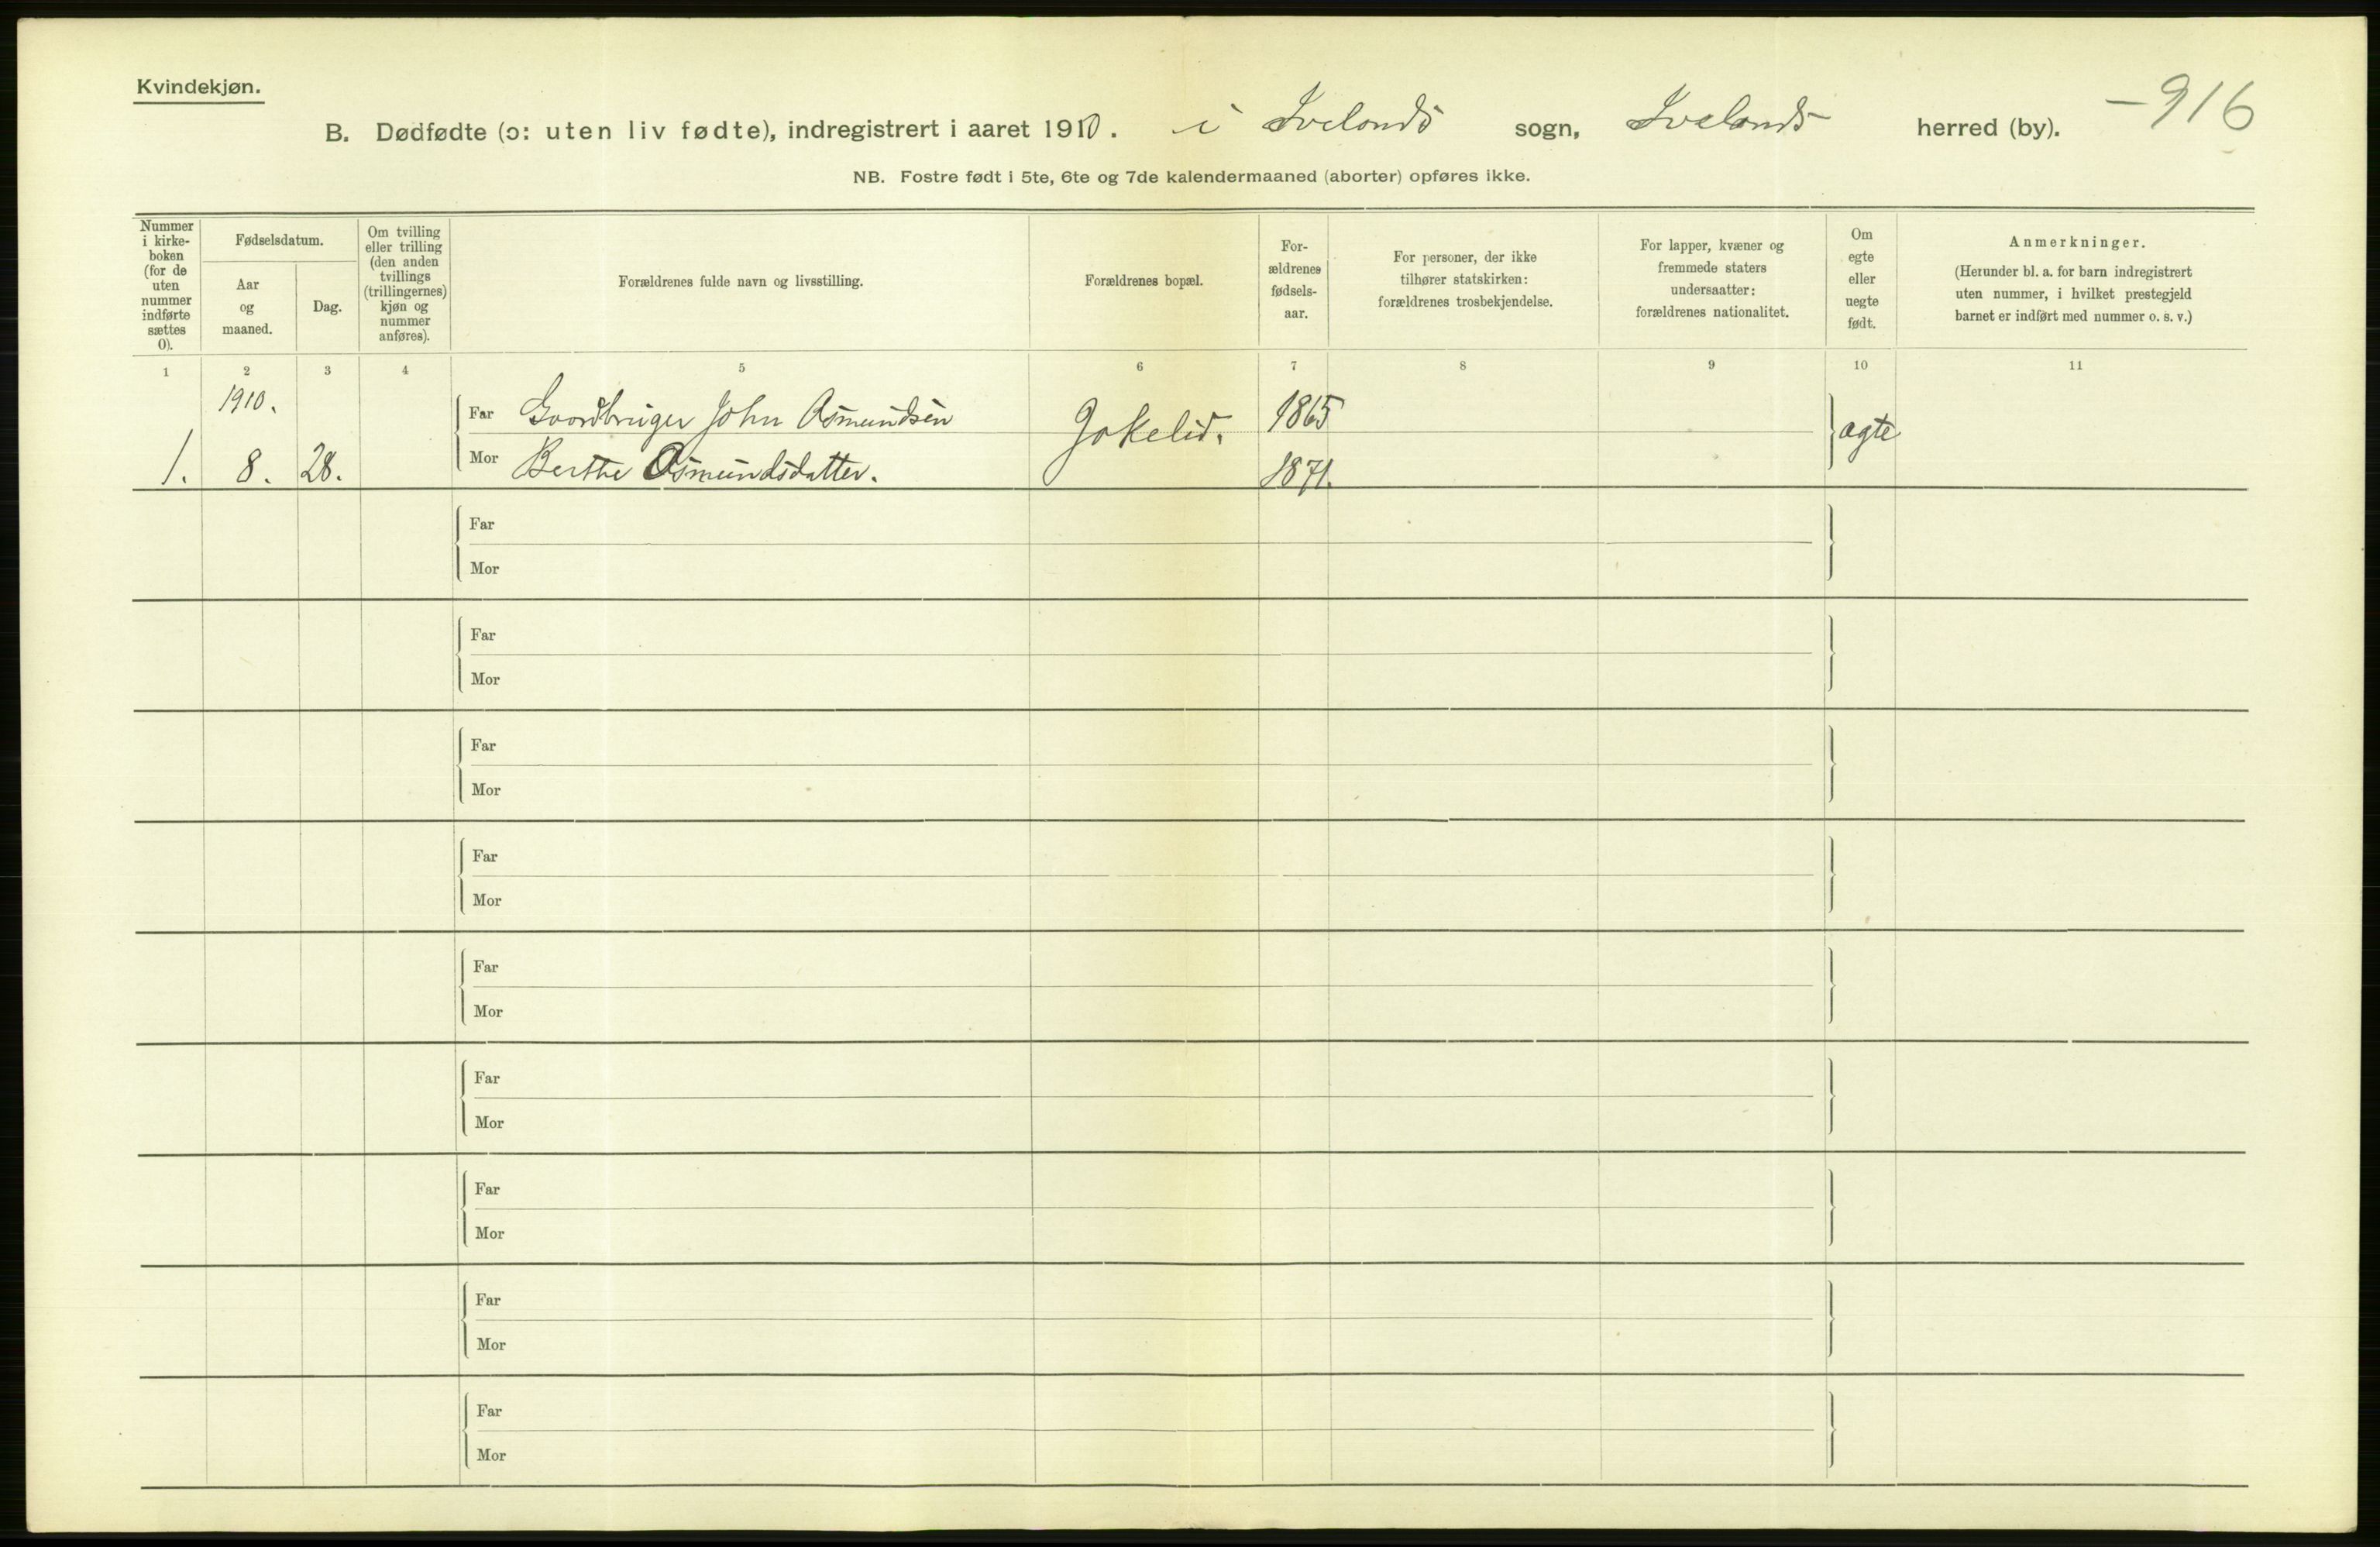 Kvindekjøn.
B. Dødfødte (ɔ: uten liv fødte), indregistrert i aaret 1910. i Ivelands sogn, Ivelands herred (by).
-916
NB. Fostre født i 5te, 6te og 7de kalendermaaned (aborter) opføres ikke.
Nummer
i kirke-
boken
(for de
uten
nummer
indførte
sættes
0).
Fødselsdatum.
Aar
og
maaned.
Dag.
Om tvilling
eller trilling
(den anden
tvillings
(trillingernes)
kjøn og
nummer
anføres).
Forældrenes fulde navn og livsstilling.
Forældrenes bopæl.
For-
ældrenes
fødsels-
aar.
For personer, der ikke
tilhører statskirken:
forældrenes trosbekjendelse.
For lapper, kvæner og
fremmede staters
undersaatter:
forældrenes nationalitet.
Om
egte
eller
uegte
født.
Anmerkninger.
(Herunder bl. a. for barn indregistrert
uten nummer, i hvilket prestegjeld
barnet er indført med nummer o. s. v.)
1 2 3 4 5 6 7 8 9 10 11
1910.
Far Gaardbruger John Osmundsen 1865
Jokelid. ægte
1. 8. 28. Mor Berthe Osmundsdatter. 1871.
Far
Mor
Far
Mor
Far
Mor
Far
Mor
Far
Mor
Far
Mor
Far
Mor
Far
Mor
Far
Mor